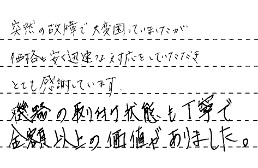 突然の故障で大変困っていましたが
価格も安く迅速な対応をしていただき
とても感謝しています。
機器の取付け状態も丁寧で
金額以上の価値がありました。